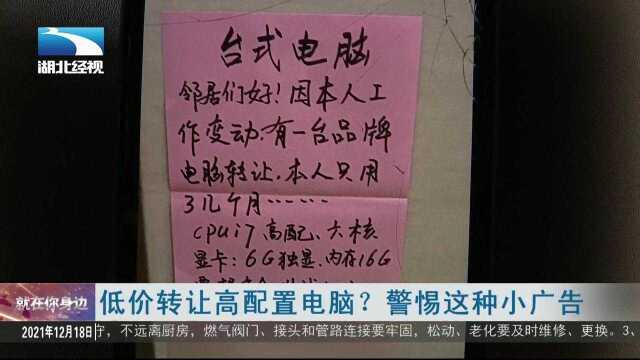 湖北经视
台式电脑
邻居们好！因本人工
作变动.有一台品牌
电脑转让.本人只用
3几个月……
cpui7高配、六核
显卡：6G独显、内存16G
就在你身边
低价转让高配置电脑？警惕这种小广告
2021年12月18日
宁，不远离厨房，燃气阀门、接头和管路连接要牢固，松动、老化要及时维修、更换。3、